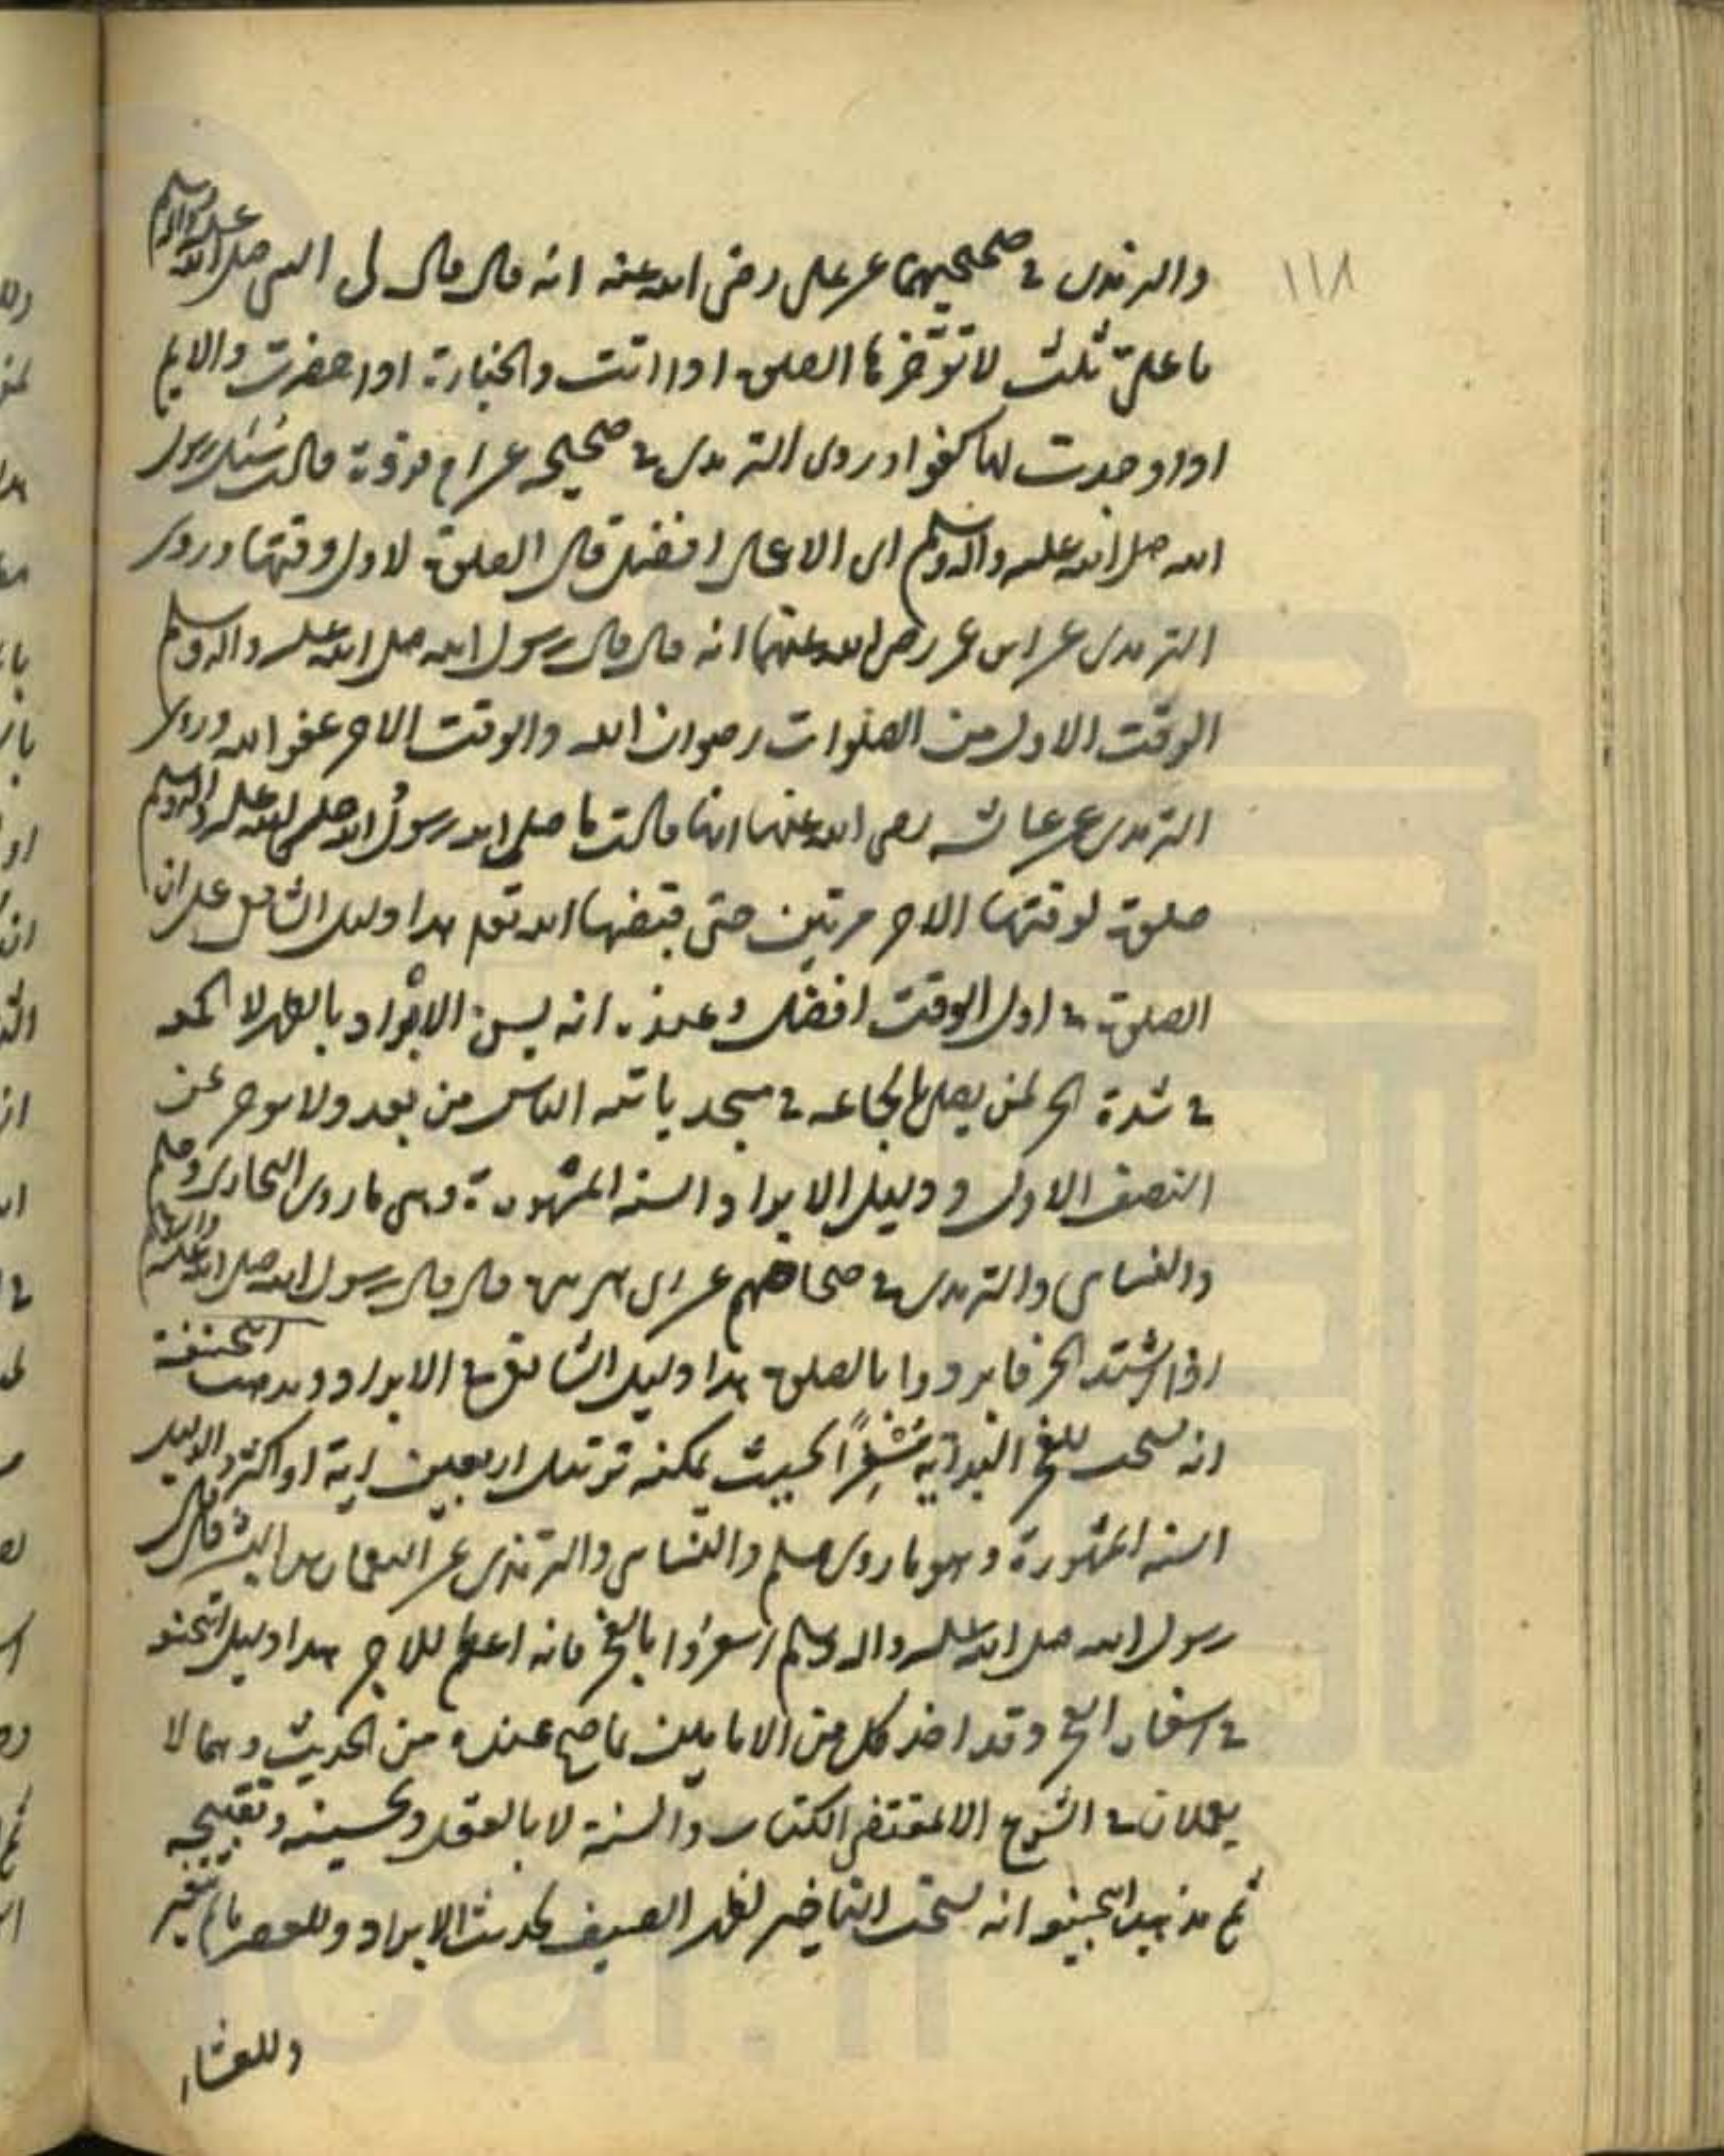 ١١٨
والترمذى فى صحيحيهما عن على رضى الله عنه انه قال قال لى النبى صلى الله عليه واله وسلم
يا على ثلث لا تؤخرها الصلوة اذا اتت والجنازة اذا حضرت والايم
اذا وجدت لها كفوا وروى الترمدى فى صحيحه عن ام فروة قالت سئل رسول
الله صلى الله عليه واله وسلم اى الاعمال افضل قال الصلوة لاول وقتها وروى
الترمدى عن ابن عمر رضى الله عنهما انه قال قال رسول الله صلى الله عليه واله وسلم
الوقت الاول من الصلوات رضوان الله والوقت الاخر عفو الله وروى
الترمدى عن عائشه رضى الله عنها انها قالت ما صلى الله رسول الله صلى الله عليه واله وسلم
صلوة لوقتها الاخر مرتين حتى قبضها الله تعالى هذا دليل الشافعى على ان
الصلوة فى اول الوقت افضل وعنده انه يسن الابراد بالظهر لا الجمعه
فى شدة الحر لمن يصلى بالجماعه فى مسجد ياتيه الناس من بعد ولا يوخر عن
النصف الاول ودليل الابراد السنه المشهورة وهى ما روى البخارى ومسلم
والنسائى والترمدى فى صحاحهم عن ابى هريرة قال قال رسول الله صلى الله عليه واله وسلم
اذا اشتد الحر فابردوا بالصلوة هذا دليل الشافعى فى الابراد ومدهب الحنفية
انه يستحب للفجر البداية مسفرا بحيث يمكنه ترتيل اربعين اية او اكثر والدليل
السنه المشهورة وهو ما روى مسلم والنسائى والترمذى عن النعمان بن البشر قال قال
رسول الله صلى الله عليه واله وسلم اسفروا بالفجر فانه اعظم للاجر هذا دليل الحنفيه
فى اسفار الفجر وقد اخذ كل من الامامين ما صح عنده من الحديث وهما لا
يعملان فى الشرع الا بمقتضى الكتاب والسنة لا بالعقل وتحسينه وتقبيحه
ثم مذهب الحنفيه انه يستحب التاخير لظهر الصيف لحديث الابراد وللعصر ما لم تتغير
وللعشاء